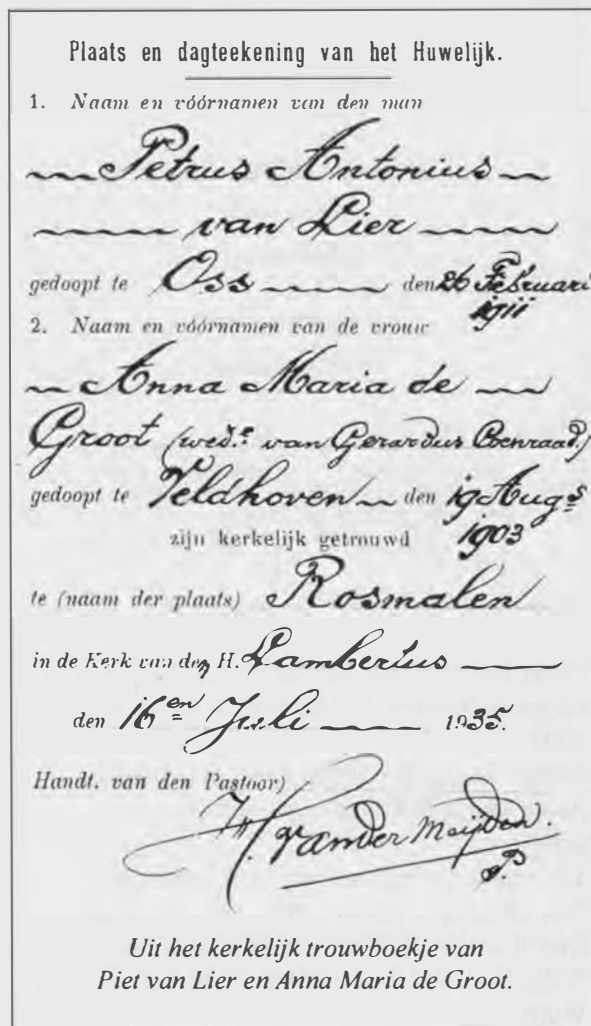 Plaats en dagteekening van het Huwelijk.
1. Naam en vóórnamen van den man
Petrus Antonius
van Lier
gedoopt te Oss den 26 Februari
1911
2. Naam en vóórnamen van de vrouw
Anna Maria de
Groot (wed.e van Gerardus Coenraad.)
gedoopt te Veldhoven den 19 Augs
1903
zijn kerkelijk getrouwd
te (naam der plaats) Rosmalen
in de Kerk van den H. Lambertus
den 16en Juli 1935.
Handt. van den Pastoor)
van der Meijden.
Uit het kerkelijk trouwboekje van
Piet van Lier en Anna Maria de Groot.